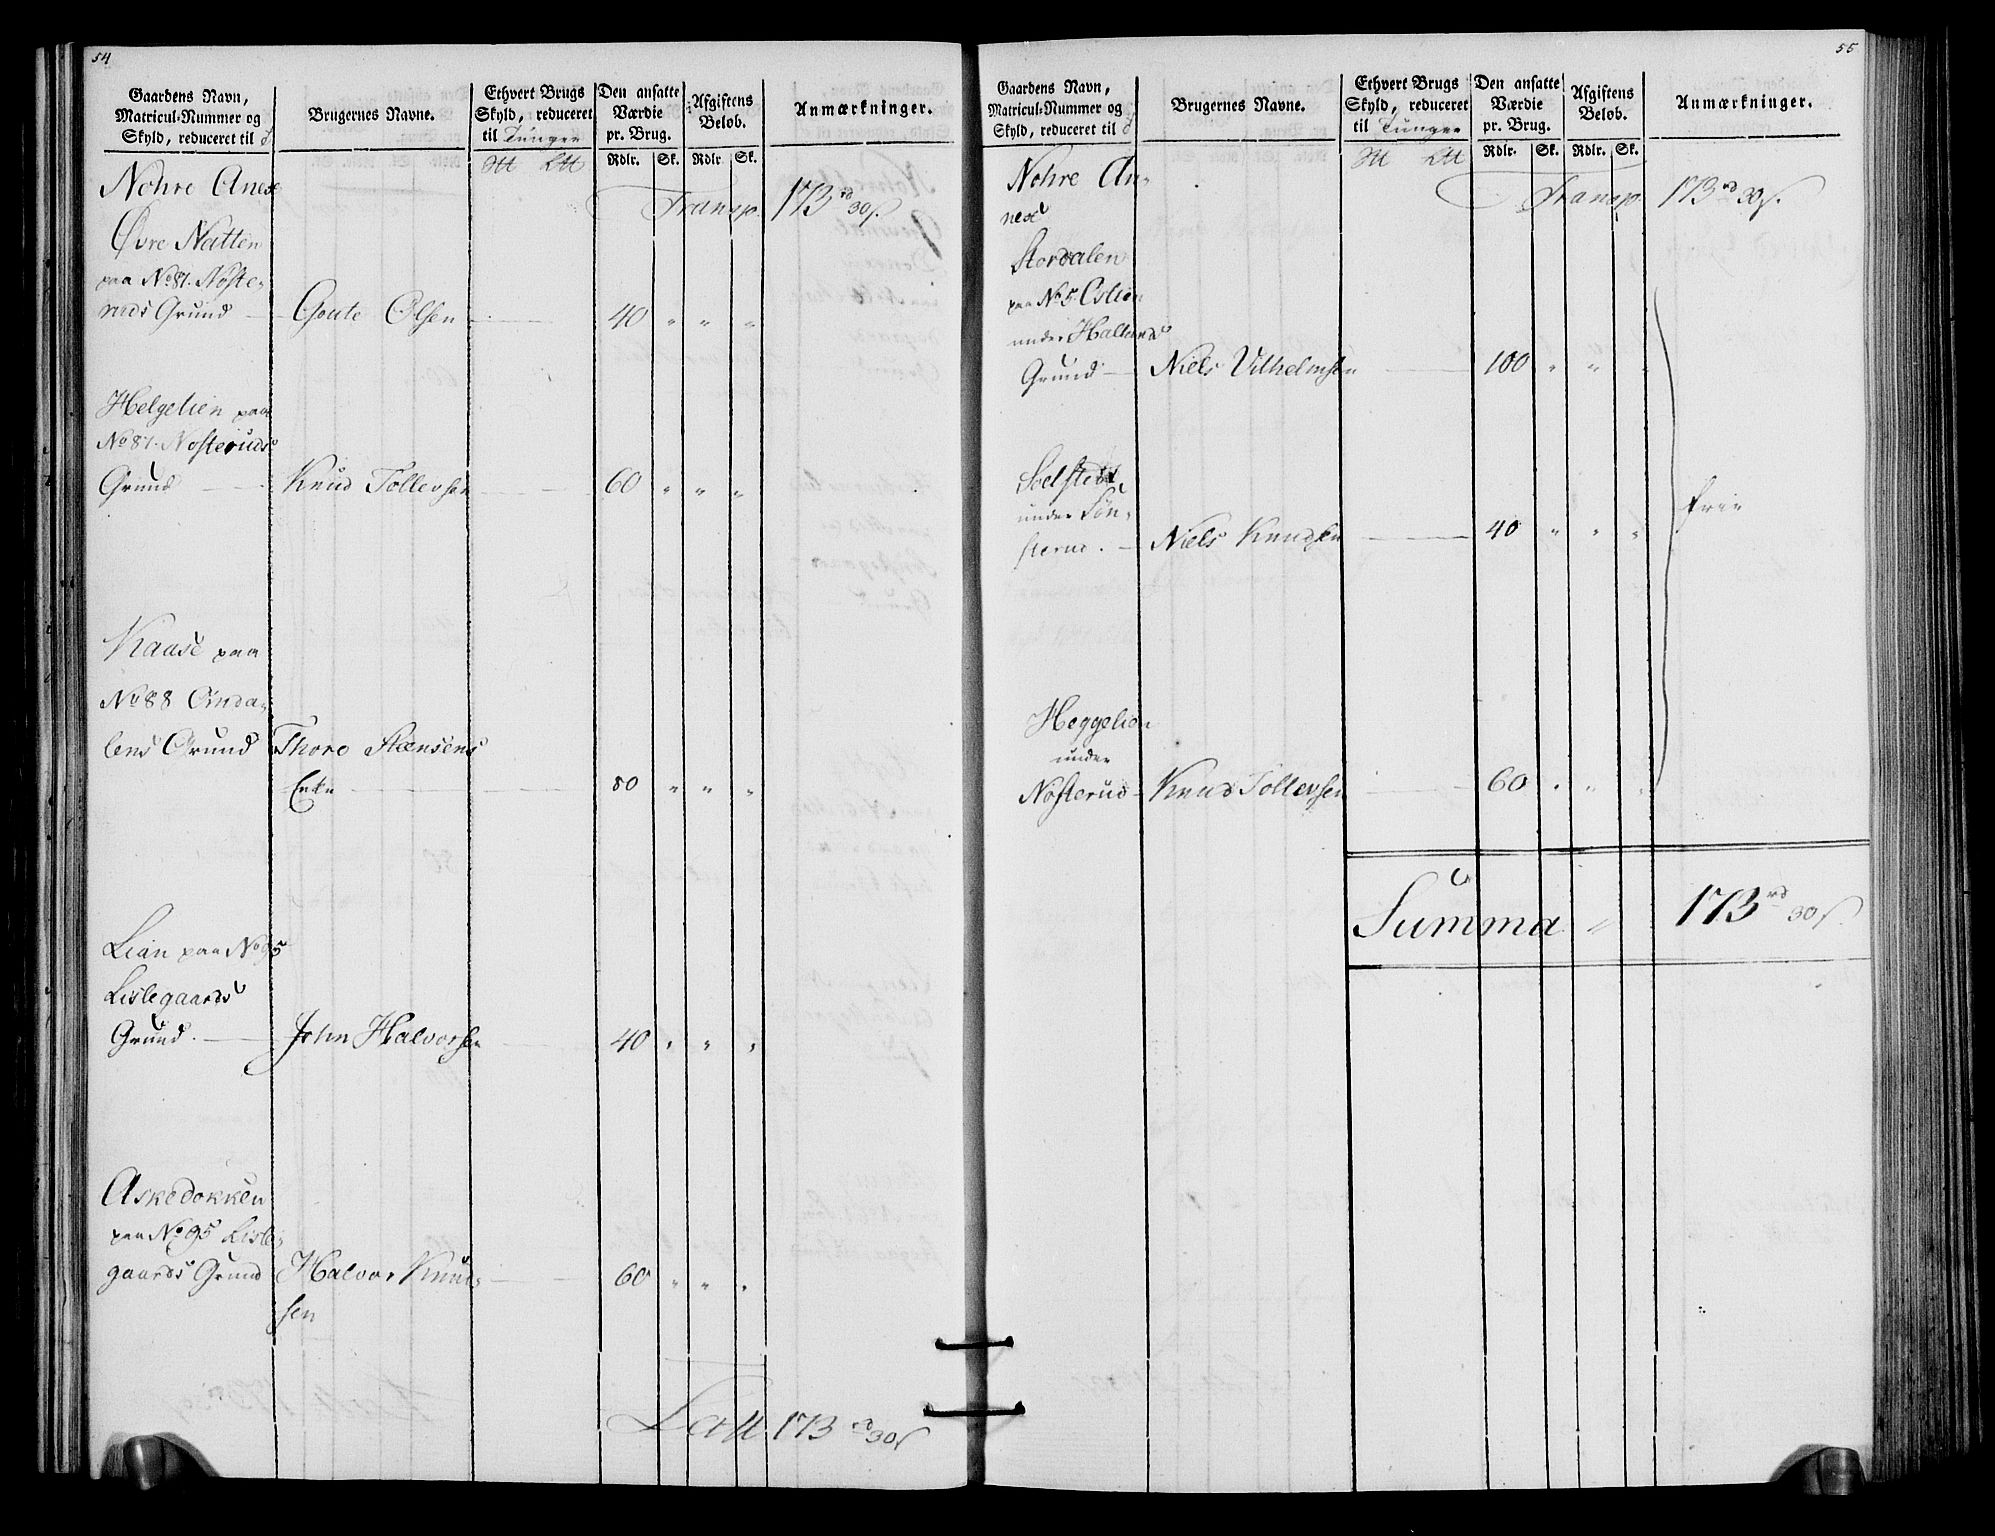 54
Gaardens Navn,
Matricul-Nummer og
Skyld, reduceret til
Brugernes Navne.
Ethvert Brugs
Skyld, reduceret
til Tunger
Den ansatte
Værdie
pr. Brug.
Rdlr. Sk.
Afgiftens
Beløb.
Rdlr. Sk.
Anmærkninger.
Nohre Anex
Transp. 173 rd 30 s.
Øvre Natten
paa No 87. Nøste-
ruds Grund
Goute Olsen 40 " " "
Helgelien paa
No 87. Nøsteruds
Grund
Knud Tollevsen 60 " " "
Kaase paa
No 88
lens Grund Thore Steensens
Enke 80 " " "
Lian paa No 95
Lislegaards
Grund. John Halvorsen 40 " " "
Askedokken
paa No 95 Lisle-
gaards Grund Halvor Knud-
sen 60 " " "
Latt 173 rd 30 s
55
Gaardens Navn,
Matricul-Nummer og
Skyld, reduceret til
Brugernes Navne.
Ethvert Brugs
Skyld, reduceret
til Tunger
Den ansatte
Værdie
pr. Brug.
Rdlr. Sk.
Afgiftens
Beløb.
Rdlr. Sk.
Anmærkninger.
Nohre An-
nex
Transp. 173 rd 30 s.
Stordalen
paa No 5
under
Grund Niels Vilhelmsen 100 " " "
under Søn-
sterud. Niels Knudsen 40 " " "
frie
Heggelien
under
Nøsterud Knud Tollevsen 60 " " "
Summa " 173 rd 30 s